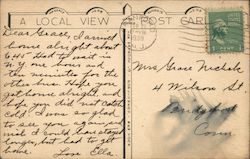 A LOCAL VIEW
POST CARD
Dear Grace, I arrived
home alright about
6:45 Had to wait in
N.Y. one hour and
ten minutes for the
other bus. Hope you
got home alright and
hope you did not catch
cold. I was so glad
to see you again and
wish I could have stayed
longer, but had to get
home. Love Ella.
Mrs Grace Nichols
4 Wilson St.
Conn.